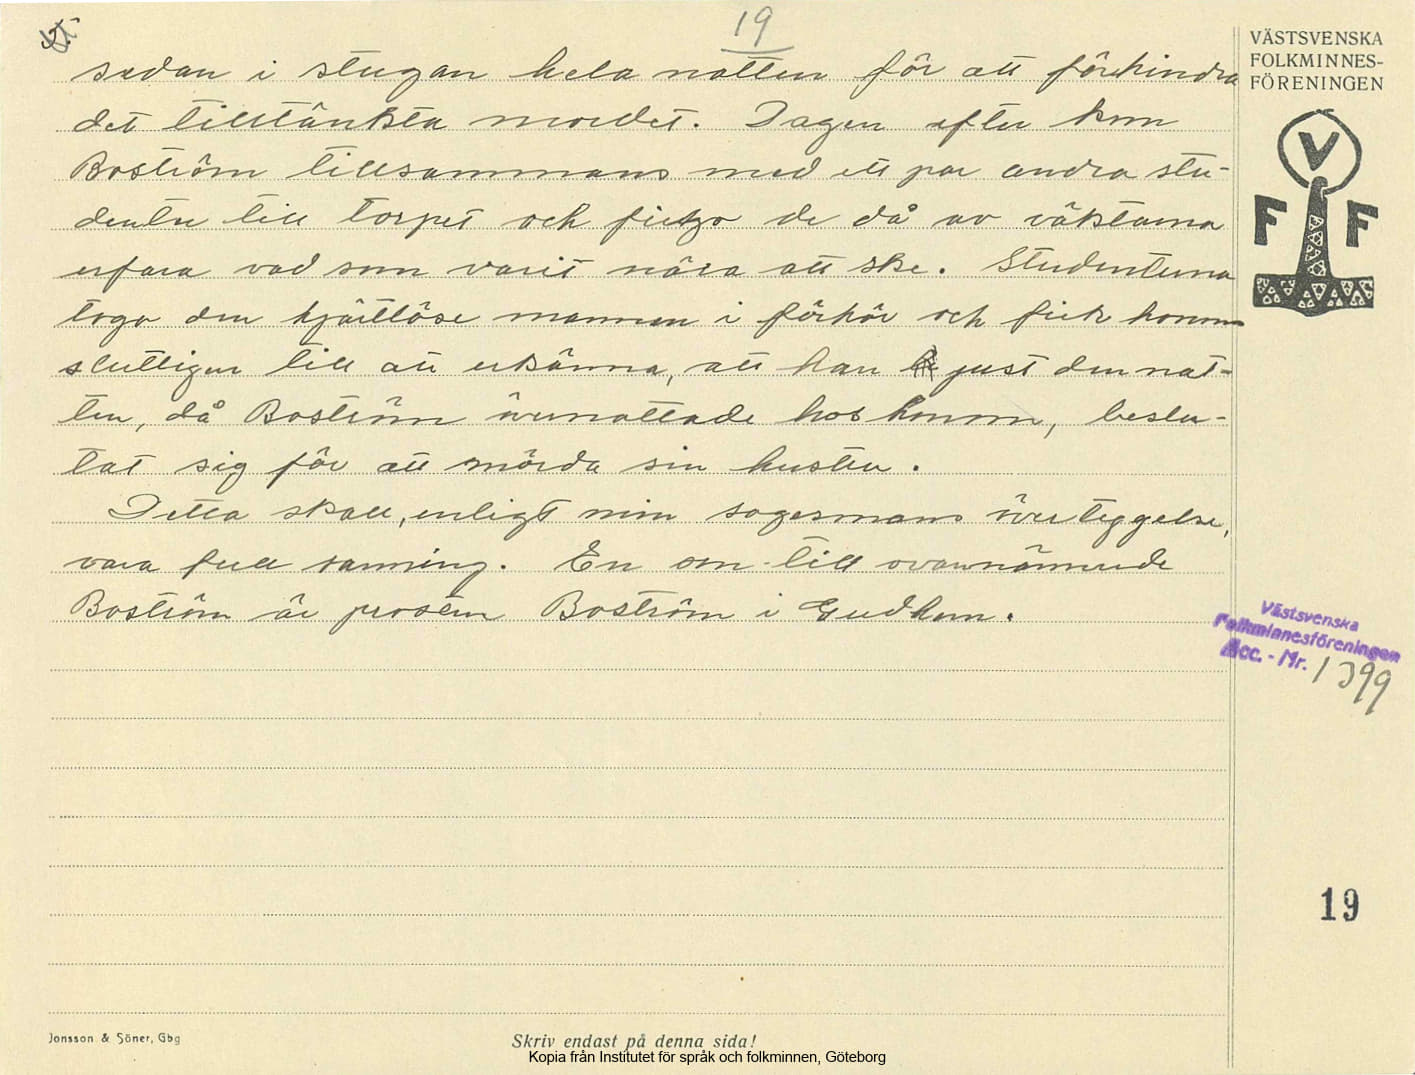 19
VÄSTSVENSKA
FOLKMINNES-
FÖRENINGEN
V
F F
sedan i stugan hela natten för att förhindra
det tilltänkta mordet. Dagen efter kom
Boström tillsammans med ett par andra stu-
denter till torpet och fingo de då av väktarna
erfara vad som varit nära att ske. Studenterna
togo den hjärtlöse mannen i förhör och fick honom
slutligen till att erkänna, att han just den nat-
ten, då Boström övernattade hos honom, beslu-
tat sig för att mörda sin hustru.
Detta skall, enligt min sagesmans övertygelse,
vara full sanning. En son till ovannämnde
Boström är prosten Boström i Gudhem.
Västsvenska
Folkminnesföreningen
Acc. - Nr. 1399
19
Jonsson & Söner, Gbg
Skriv endast på denna sida!
Kopia från Institutet för språk och folkminnen, Göteborg